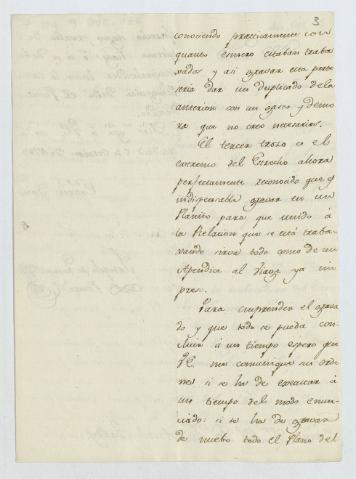 3
conociendo precisamente con
quanto esmero estaban traba
xados y asi gravar esta parte
seria dar un duplicado de la
anterior con un gasto y demo
ra que no creo necesarios.
El tercer trozo es el
extremo del Estrecho ahora
perfectamente reconocido que es
indispensable gravar en un
Planito para que unido á
la Relacion que se está traba
xando sirva todo como de un
Apendice al Viage ya im
preso.
Para emprender el grava
do y que todo se pueda con
cluir á un tiempo espero que
V.E. me comunique sus orde
nes si se ha de executar á
un tiempo del modo enun
ciado: si se ha de gravar
de nuevo todo el Plano del